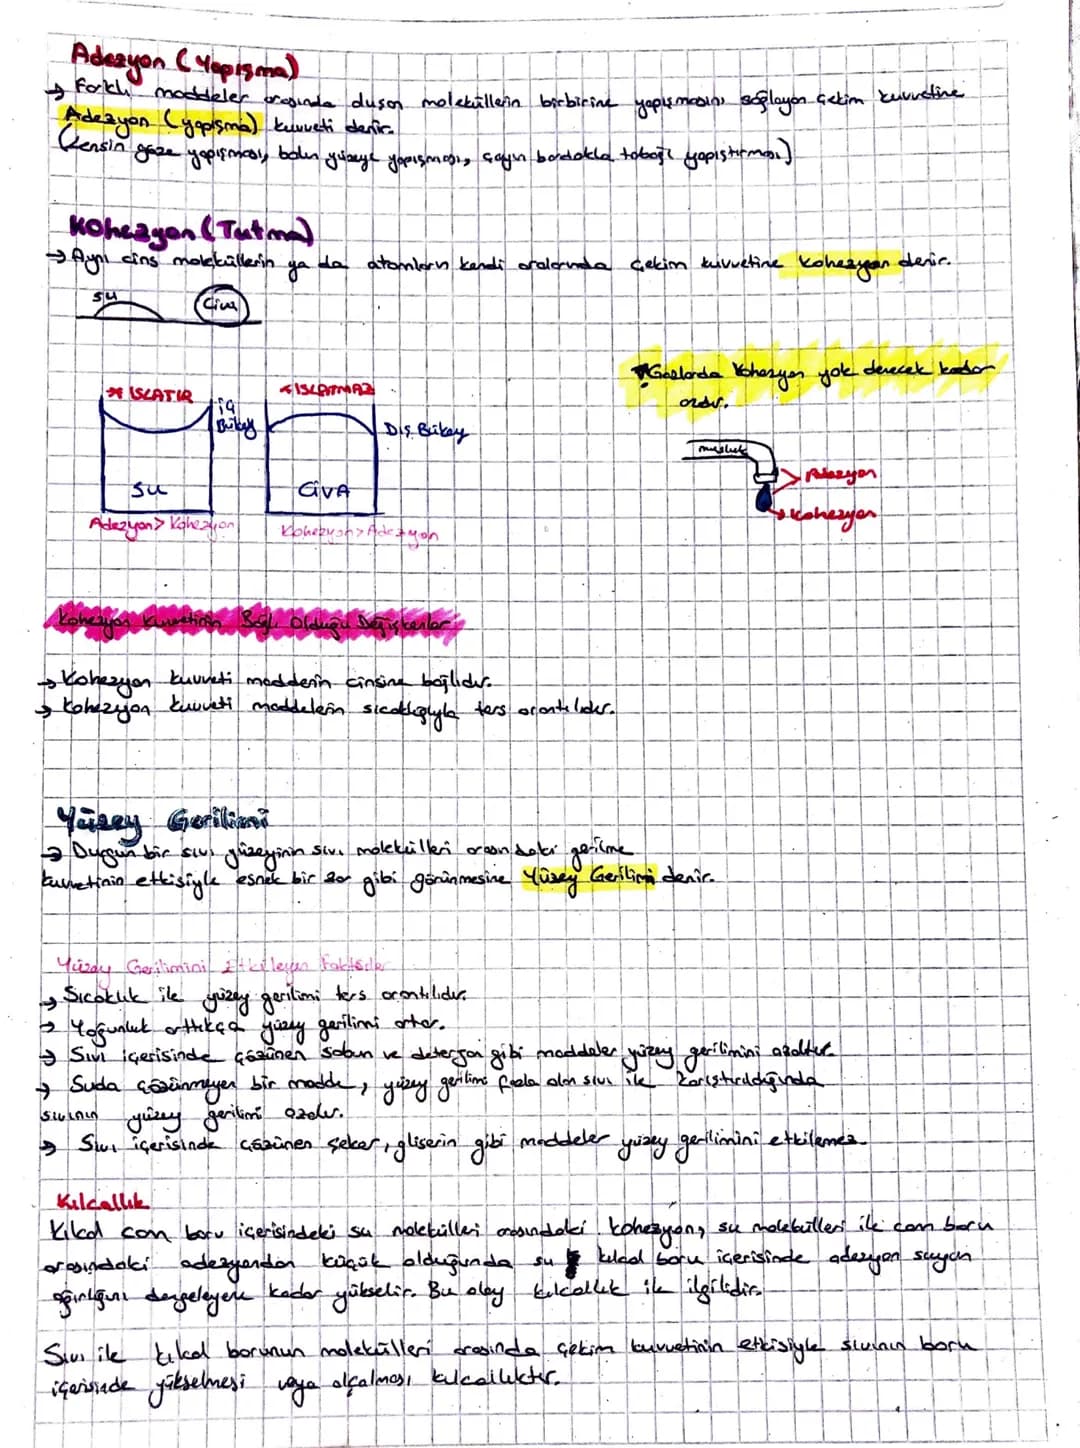 Adezyon (Yapışma)
→ Farklı maddeler arasında duşan moleküllerin birbirine yapışmasını sağlayan çekim kuvvetine
Adezyon (yapışma) kuvveti denir.
(Lensin göze yapışması, balın yüzeye yapışması, çayın bardakla tabağı yapıştırması)
Kohezyon (Tutma)
→ Aynı cins moleküllerin ya da atomların kendi aralarında çekim kuvvetine Kohezyon denir.
su
Civa
Gazlarda Kohezyon yok denecek kadar
azdır.
* ISLATIR
* ISLATMAZ
iç
Bükey
Dış Bükey
musluk
Adezyon
su
CİVA
Kohezyon
Adezyon > Kohezyon
Kohezyon > Adezyon
Kohezyon Kuvvetinin Bağlı Olduğu Değişkenler
→ Kohezyon kuvveti maddenin cinsine bağlıdır.
→ Kohezyon kuvveti maddelerin sıcaklığıyla ters orantılıdır.
Yüzey Gerilimi
→ Durgun bir sıvı yüzeyinin sıvı molekülleri arasındaki gerilme
kuvvetinin etkisiyle esnek bir zar gibi görünmesine Yüzey Gerilimi denir.
Yüzey Gerilimini Etkileyen Faktörler
→ Sıcaklık ile yüzey gerilimi ters orantılıdır.
→ Yoğunluk arttıkça yüzey gerilimi artar.
→ Sıvı içerisinde çözünen sabun ve deterjan gibi maddeler yüzey gerilimini azaltır.
→ Suda çözünmeyen bir madde, yüzey gerilimi fazla olan sıvı ile karıştırıldığında
sıvının yüzey gerilimi azalır.
→ Sıvı içerisinde çözünen şeker, gliserin gibi maddeler yüzey gerilimini etkilemez.
Kılcallık
Kılcal cam boru içerisindeki su molekülleri arasındaki kohezyon, su molekülleri ile cam boru
arasındaki adezyondan küçük olduğunda su kılcal boru içerisinde adezyon suyun
ağırlığını dengeleyene kadar yükselir. Bu olay kılcallık ile ilgilidir.
Sıvı ile kılcal borunun molekülleri arasında çekim kuvvetinin etkisiyle sıvının boru
içerisinde yükselmesi veya alçalması kılcallıktır.